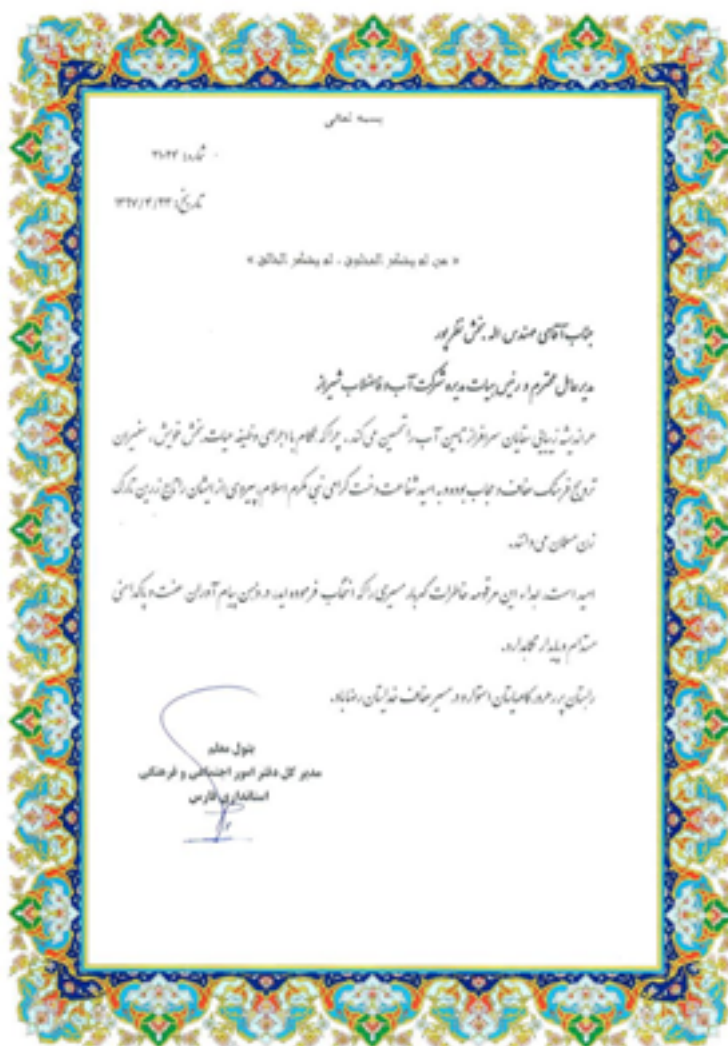 بسمه تعالی
شماره: ۳۱۰۲۳
تاریخ: ۱۳۹۷/۴/۲۳
« من لم یشکر المخلوق ، لم یشکر الخالق »
جناب آقای مهندس اله بخش نظرپور
مدیرعامل محترم و رئیس هیات مدیره شرکت آب و فاضلاب شیراز
هر اندیشه زیبایی سقایان سرافراز تامین آب را تحسین می کند ، چرا که با اجرای وظیفه حیات بخش خویش ، سفیران
ترویج فرهنگ عفاف و حجاب بوده و به امید شفاعت دخت گرامی نبی مکرم اسلام، پیروی از ایشان را تاج زرین تارک
زن مسلمان می دانند.
امید است اهداء این مرقومه خاطرات مسیری را که انتخاب فرموده اید، در ذهن پیام آوران عفت و پاکدامنی
مستدام و پایدار نگهدارد.
راهتان پر رهرو، گامهایتان استوار و در مسیر عفاف خدایتان رضا باد.
بتول معلم
مدیر کل دفتر امور اجتماعی و فرهنگی
استانداری فارس